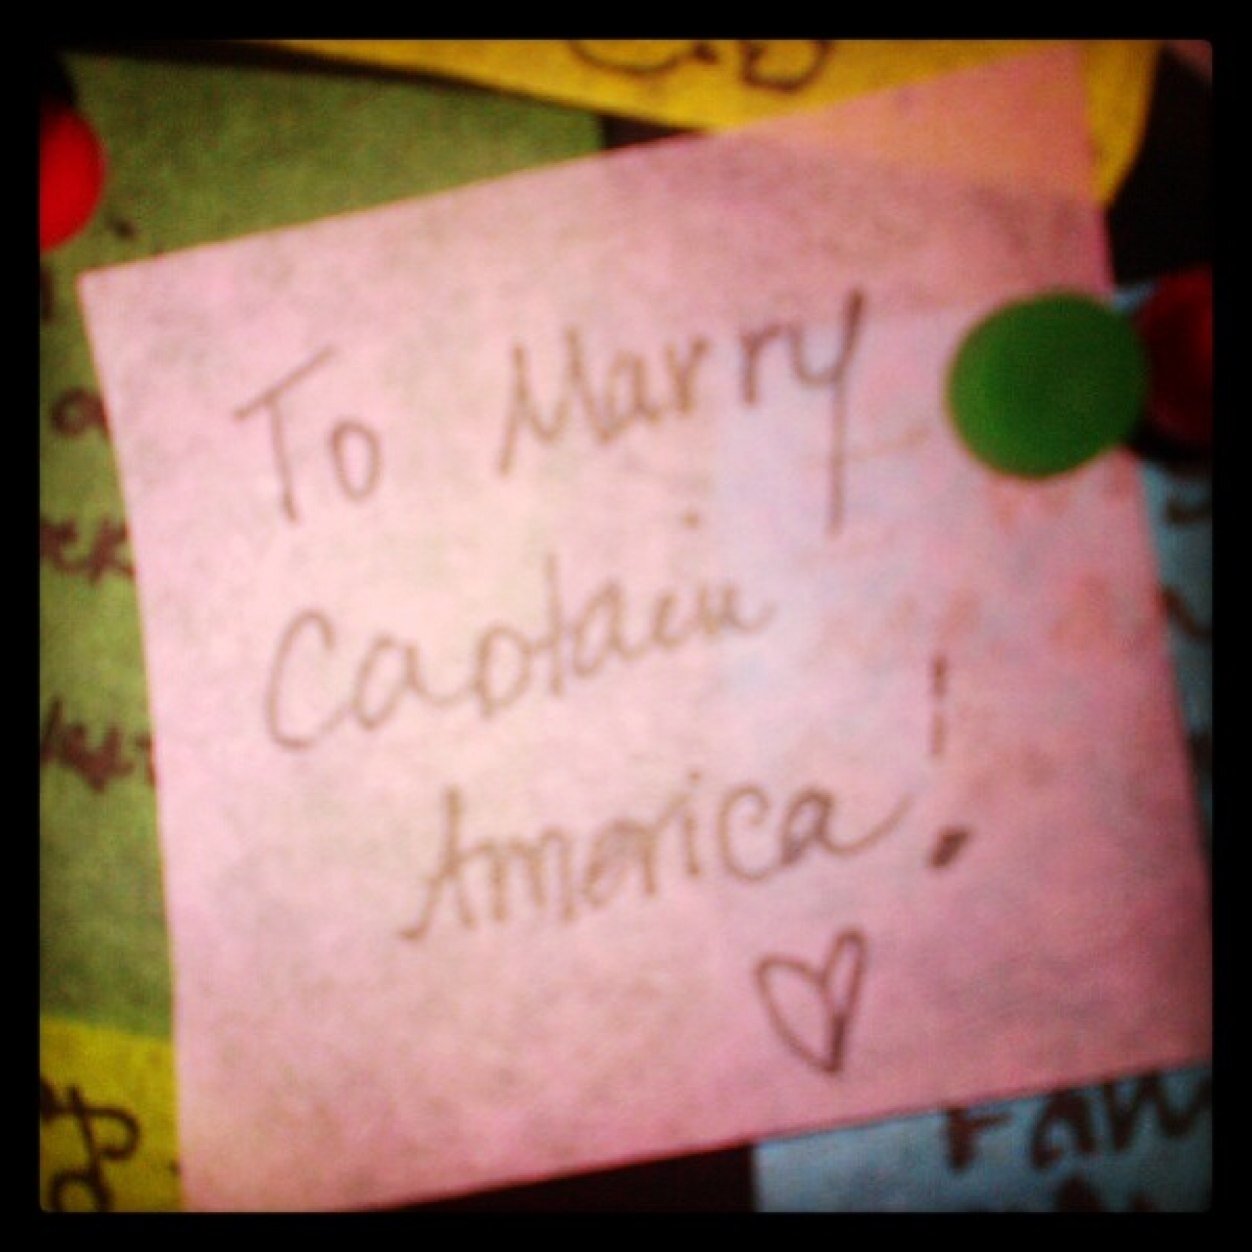 To Marry
Captain
America!
♡
Faw